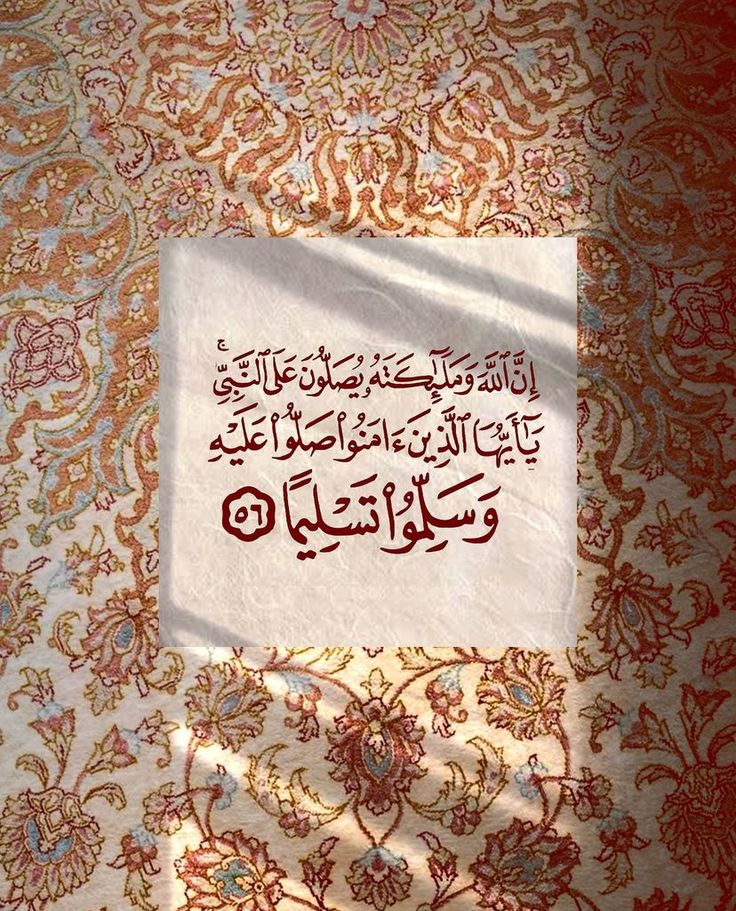 إِنَّ ٱللَّهَ وَمَلَـٰٓئِكَتَهُۥ يُصَلُّونَ عَلَى ٱلنَّبِىِّ ۚ
يَـٰٓأَيُّهَا ٱلَّذِينَ ءَامَنُوا۟ صَلُّوا۟ عَلَيْهِ
وَسَلِّمُوا۟ تَسْلِيمًا ٥٦